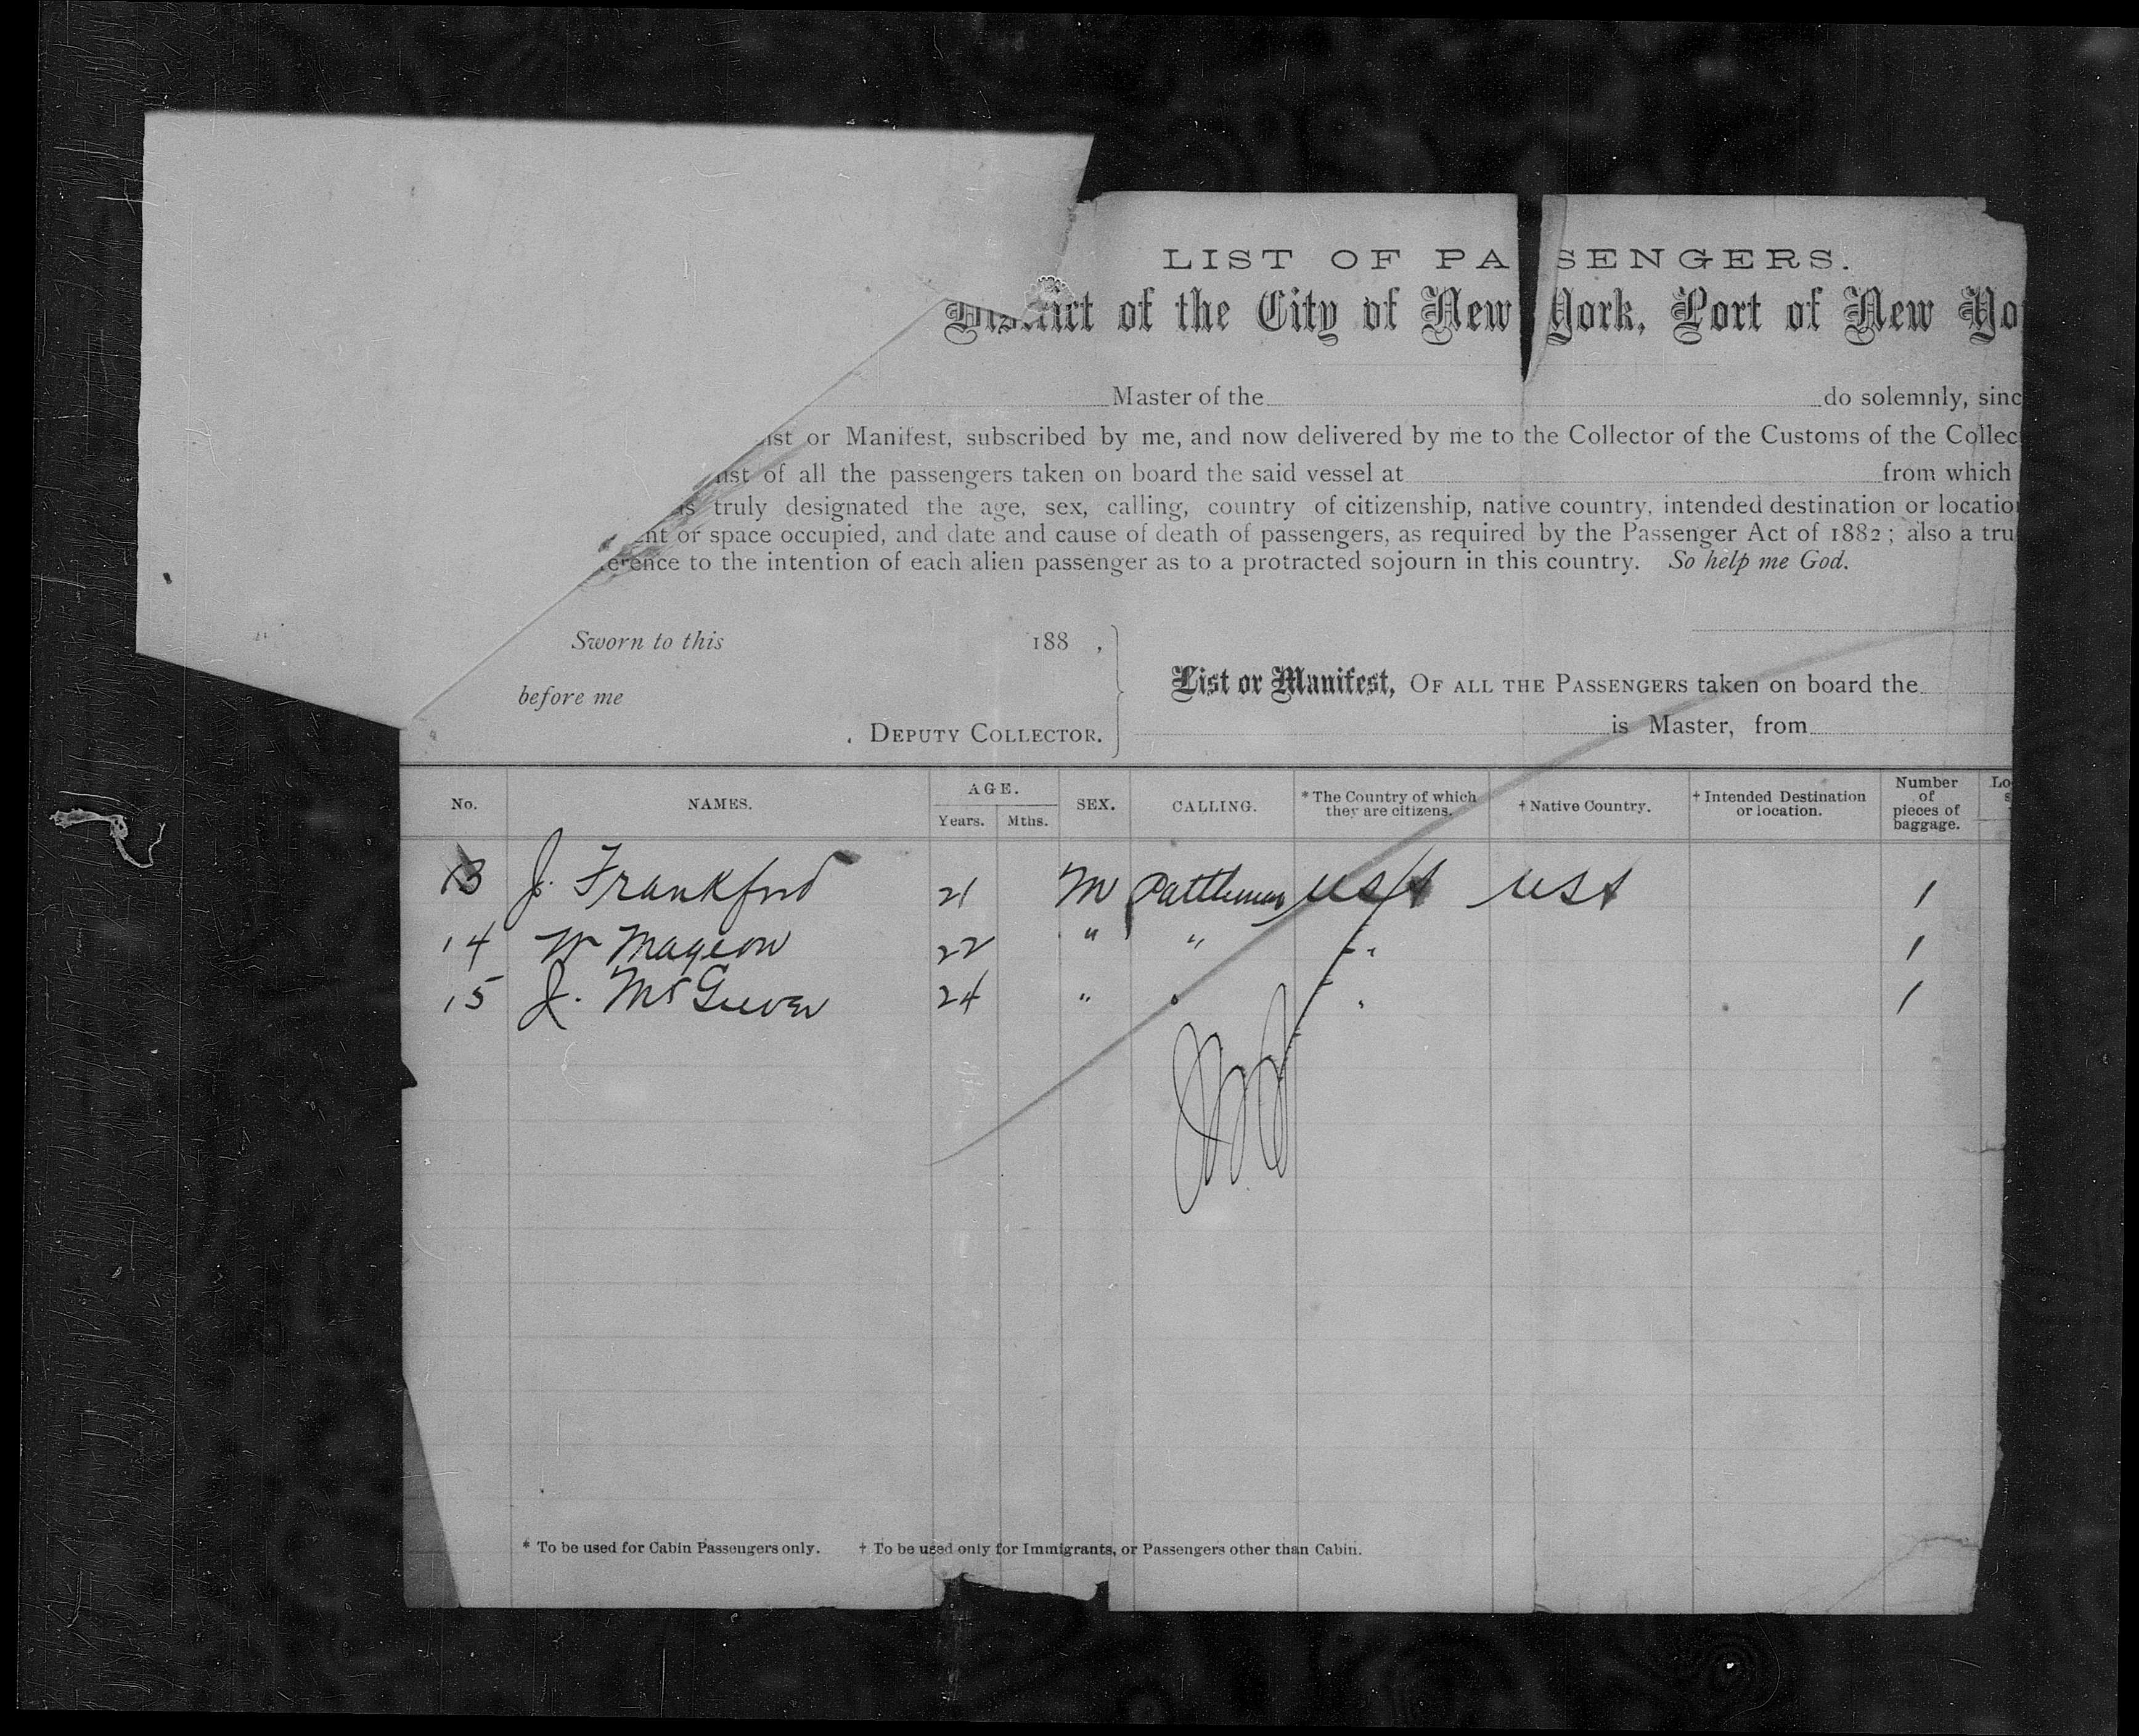 LIST OF PASSENGERS.
District of the City of New York, Port of New Yo
Master of the do solemnly, sinc
ist or Manifest, subscribed by me, and now delivered by me to the Collector of the Customs of the Collec
ist of all the passengers taken on board the said vessel at from which
is truly designated the age, sex, calling, country of citizenship, native country, intended destination or locatio
ent or space occupied, and date and cause of death of passengers, as required by the Passenger Act of 1882; also a tru
erence to the intention of each alien passenger as to a protracted sojourn in this country. So help me God.
Sworn to this 188 ,
before me
DEPUTY COLLECTOR.
List or Manifest, OF ALL THE PASSENGERS taken on board the
is Master, from
No. NAMES. AGE. Years. Mths. SEX. CALLING. * The Country of which they are citizens. † Native Country. † Intended Destination or location. Number of pieces of baggage. Lo
13 J. Frankford 21 M USA USA 1
14 W 22 " " " 1
15 J. 24 " " " 1
* To be used for Cabin Passengers only. † To be used only for Immigrants, or Passengers other than Cabin.